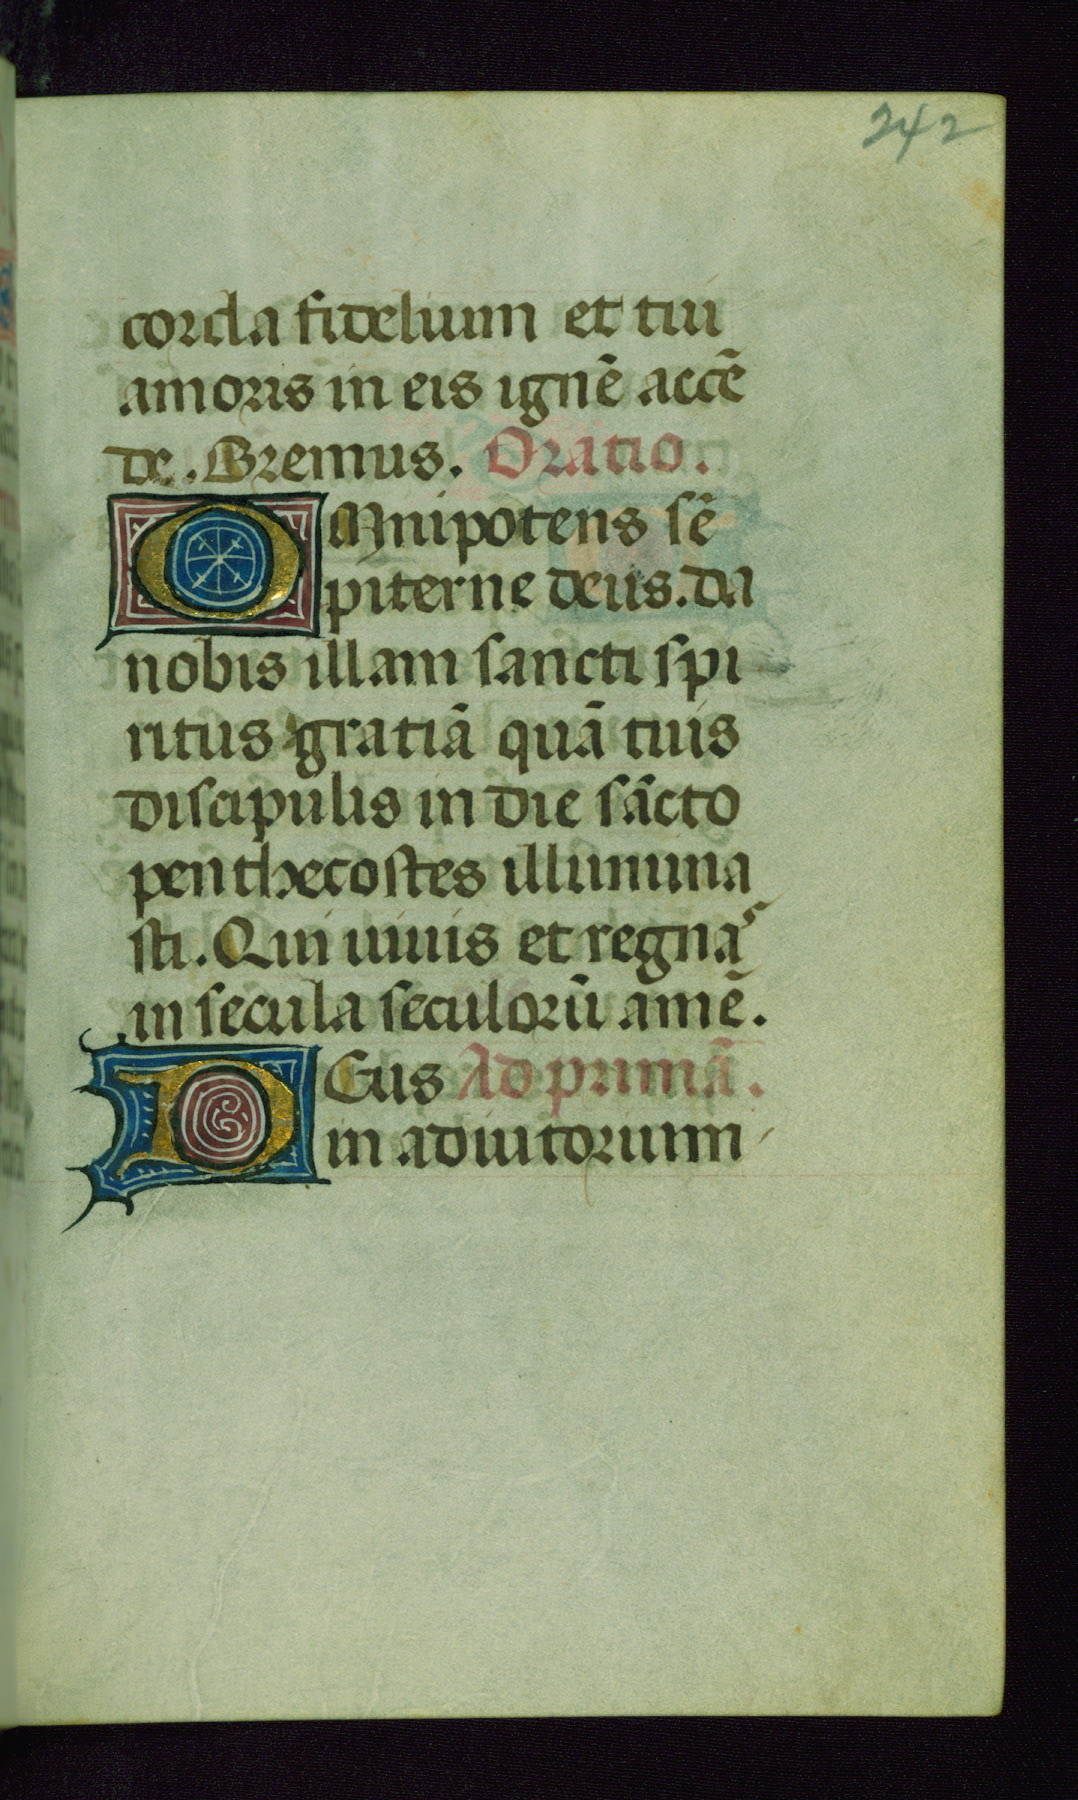 242
corda fidelium et tui
amoris in eis ignē accē
de. Oremus. Oratio.
OMnipotens sē
piterne deus. da
nobis illam sancti spi
ritus gratiā quā tuis
discipulis in die sācto
penthecostes illumina
sti. Qui uiuis et regnas
in secula seculorū amē.
DEus Ad primā.
in adiutorium